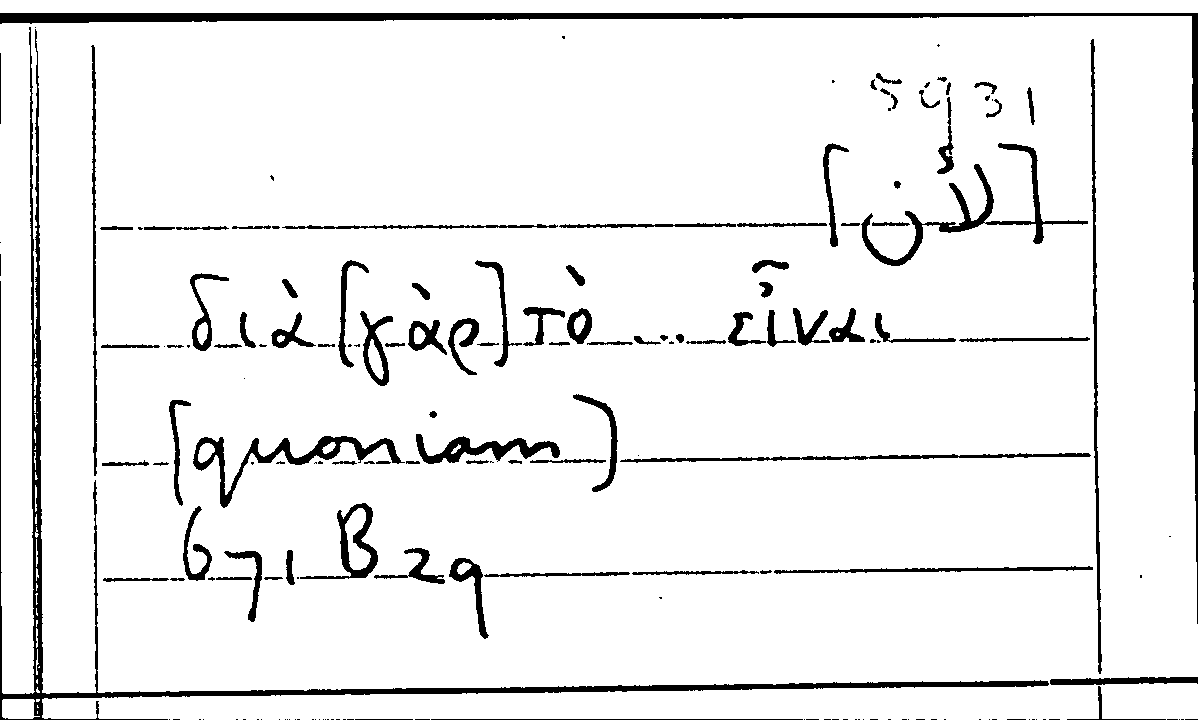 5931
[لأن]
διὰ [γὰρ] τὸ ... εἶναι
[quoniam]
671 B 29